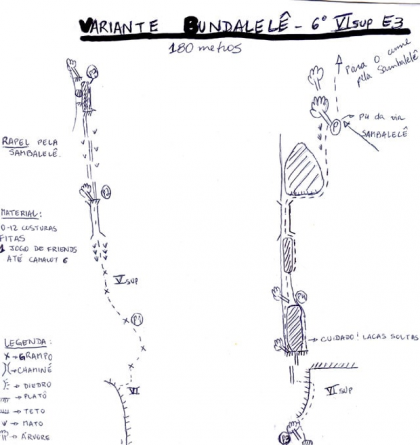 VARIANTE BUNDALELÊ - 6º VI SUP E3
180 metros
Para o cume
pela Sambalelê
P2
P
Pu da via
SAMBALELÊ
RAPEL PELA
SAMBALELÊ.
MATERIAL:
0-12 COSTURAS
FITAS
1 JOGO DE FRIENDS
ATÉ CAMALOT 6
V SUP
P4
CUIDADO! LACAS SOLTAS
LEGENDA:
X → GRAMPO
→ CHAMINÉ
→ DIEDRO
→ PLATÔ
→ TETO
→ MATO
→ ÁRVORE
VI
VI SUP